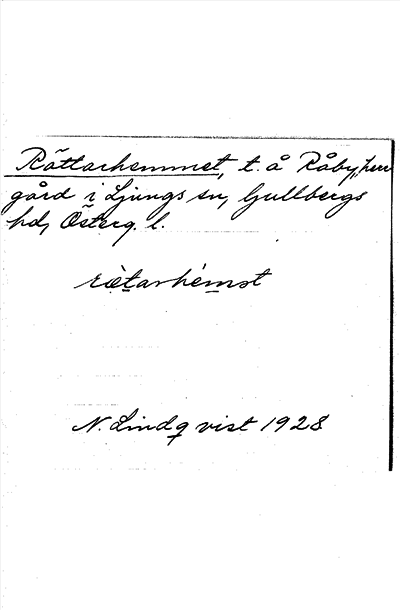 Rättarhemmet, t. å Råby, herr
gård i Ljungs sn, Gullbergs
hd, Österg. l.
rätarhémət
N. Lindqvist 1928